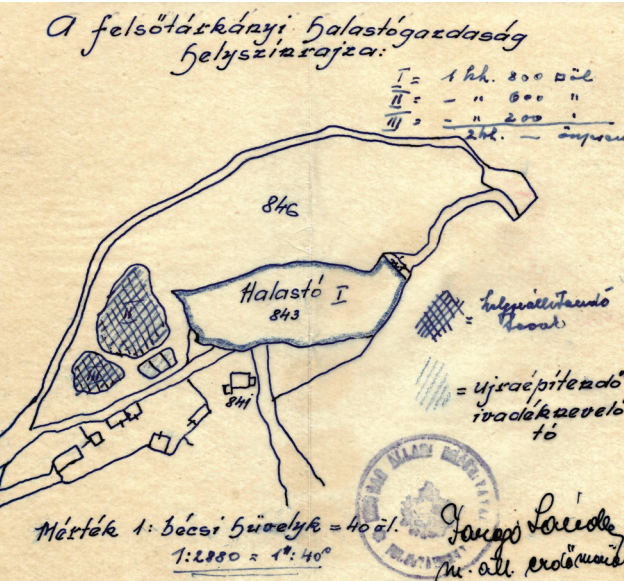 A felsőtárkányi halastógazdaság
helyszínrajza:
I = 1 kh. 800 □öl
II = - " 600 "
III = - " 200 "
2 kh. —
846
Halastó I
843
II
III
841
= helyreállítandó
tavak
= ujraépítendő
ivadéknevelő
tó
Mérték 1: bécsi hüvelyk = 40 öl.
1:2880 = 1": 40°
ÁLLAMI
m. áll. erdőmérnök